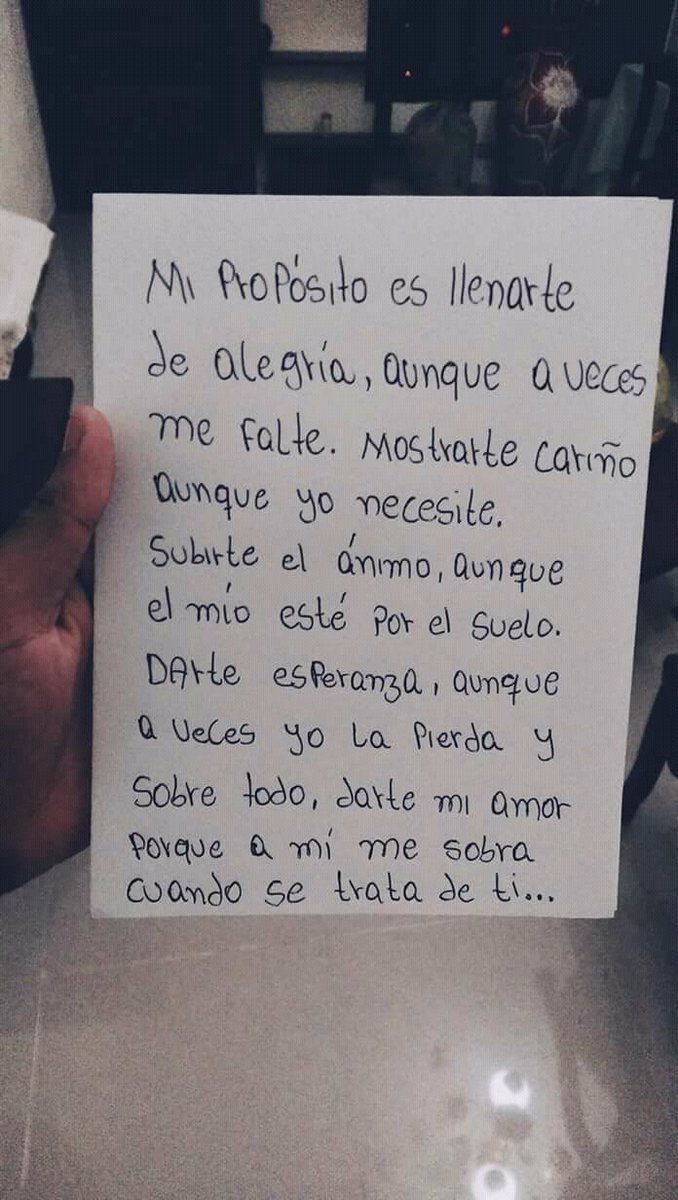 Mi Propósito es llenarte
de alegría, aunque a veces
me falte. Mostrarte cariño
aunque yo necesite.
Subirte el ánimo, aunque
el mío esté por el suelo.
Darte esperanza, aunque
a veces yo la pierda y
sobre todo, darte mi amor
porque a mí me sobra
cuando se trata de ti...